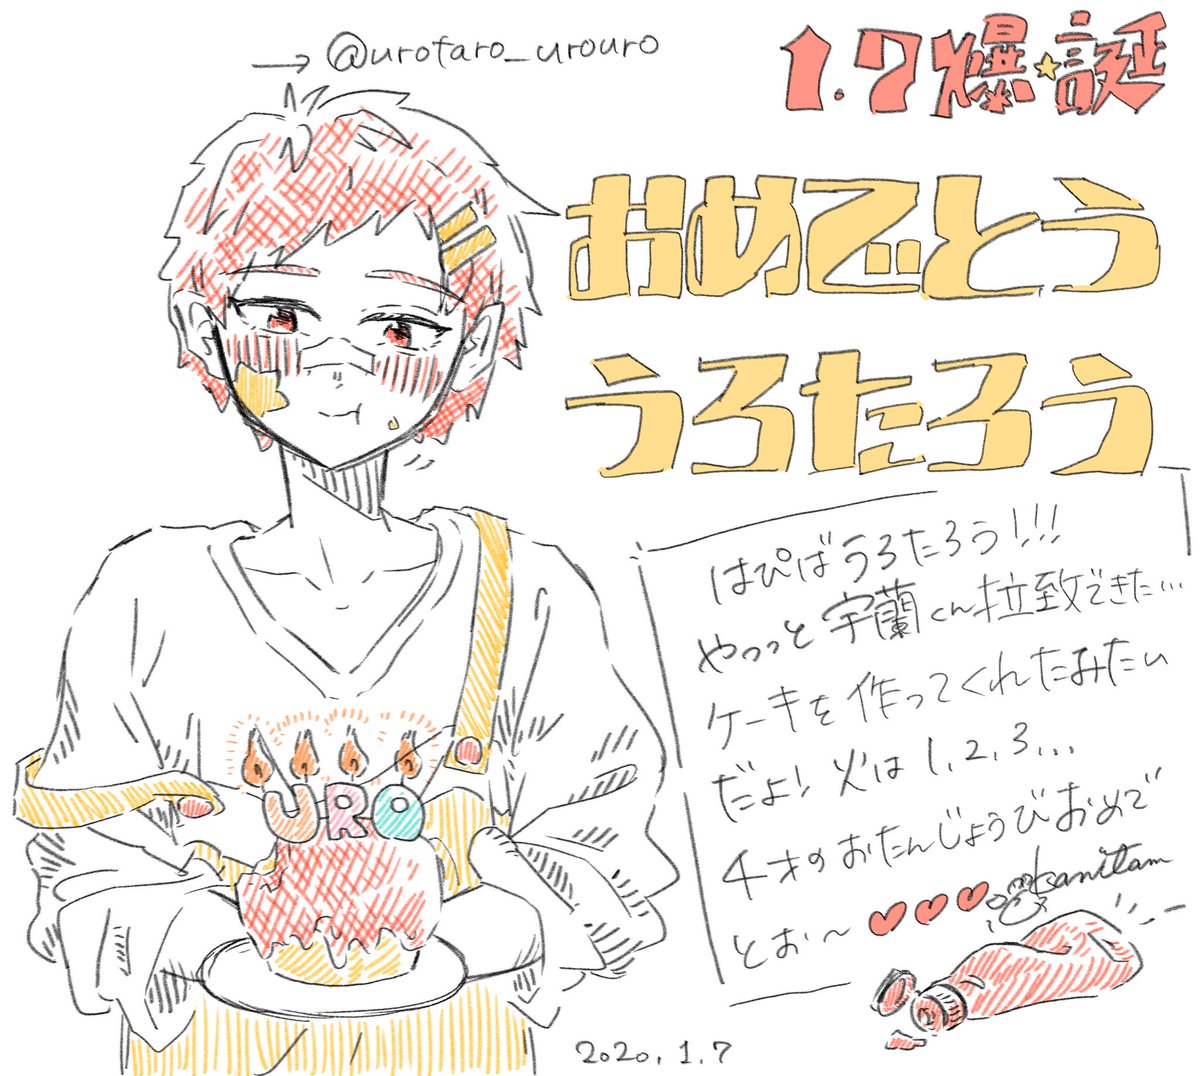 → @urotaro_urouro
1.7爆☆誕
おめでとう
うろたろう
はぴばうろたろう!!!
やっっと宇蘭くん拉致できた…
ケーキを作ってくれたみたい
だよ! 火は1,2,3...
4才のおたんじょうびおめで
とお〜♥♥♥
tsanitam
URO
2020.1.7